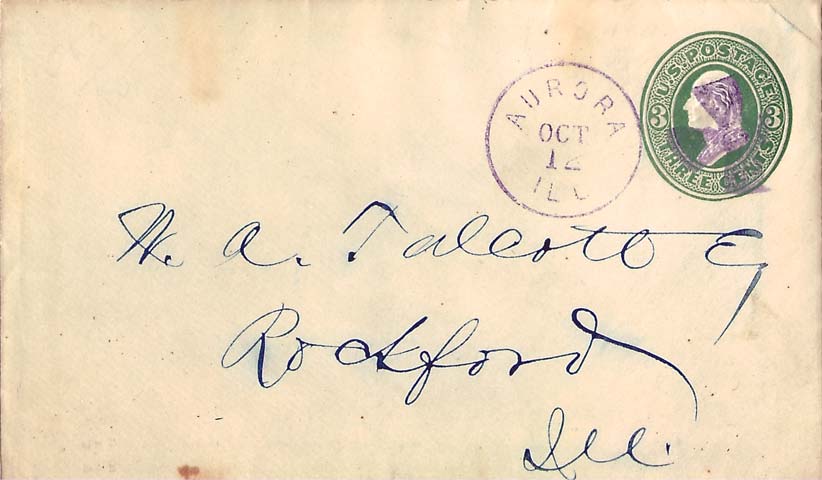 U.S. POSTAGE
3 3
THREE CENTS
AURORA
OCT
12
ILL
W. A. Talcott Eq
Rockford
Ill.